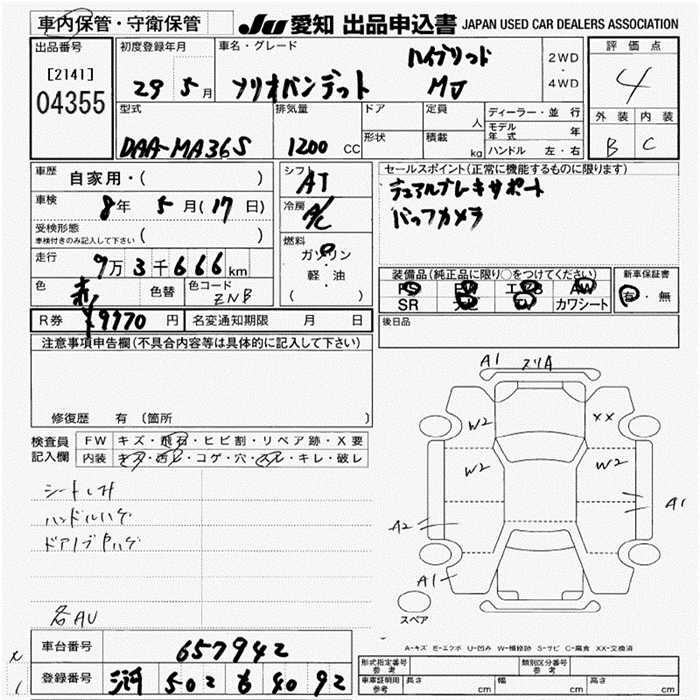 車内保管・守衛保管
JU 愛知 出品申込書 JAPAN USED CAR DEALERS ASSOCIATION
出品番号
[2141]
04355
初度登録年月
29 5月
車名・グレード
ハイブリッド
ソリオバンデット MJ
2WD
・
4WD
評価点
4
外装 内装
B C
型式
DAA-MA36S
排気量
1200 CC
ドア
形状
定員 人
積載 kg
ディーラー・並行
モデル年式 年
ハンドル 左・右
車歴 自家用・( )
車検 8年 5月(17日)
受検形態
車検付きのみ記入して下さい ( )
走行 9万3千666km
色 赤 色替 色コード ZNB
R券 ¥9770円 名変通知期限 月 日
シフト AT
冷房 A/C
燃料
ガソリン
・
軽・油
( )
セールスポイント(正常に機能するものに限ります)
デュアルブレーキサポート
バックカメラ
装備品(純正品に限り○をつけてください)
PS PW エアB AW
SR ナビ TV カワシート
新車保証書
有・無
後日品
注意事項申告欄(不具合内容等は具体的に記入して下さい)
修復歴 有 (箇所
検査員
記入欄
FW キズ・飛石・ヒビ割・リペア跡・X要
内装 キズ・汚レ・コゲ・穴・スレ・キレ・破レ
シートしみ
ハンドルハゲ
ドアノブヤハゲ
名AU
A1 スリA
W2 XX
W2 W2
A1
A2
A1
スペア
A-キズ E-エクボ U-凹み W-補修跡 S-サビ C-腐食 XX-交換済
車台番号 657942
登録番号 502 6 40 92
形式指定番号
参考
類別区分番号
参考
車庫証明用
参考
長さ cm 幅 cm 高さ cm